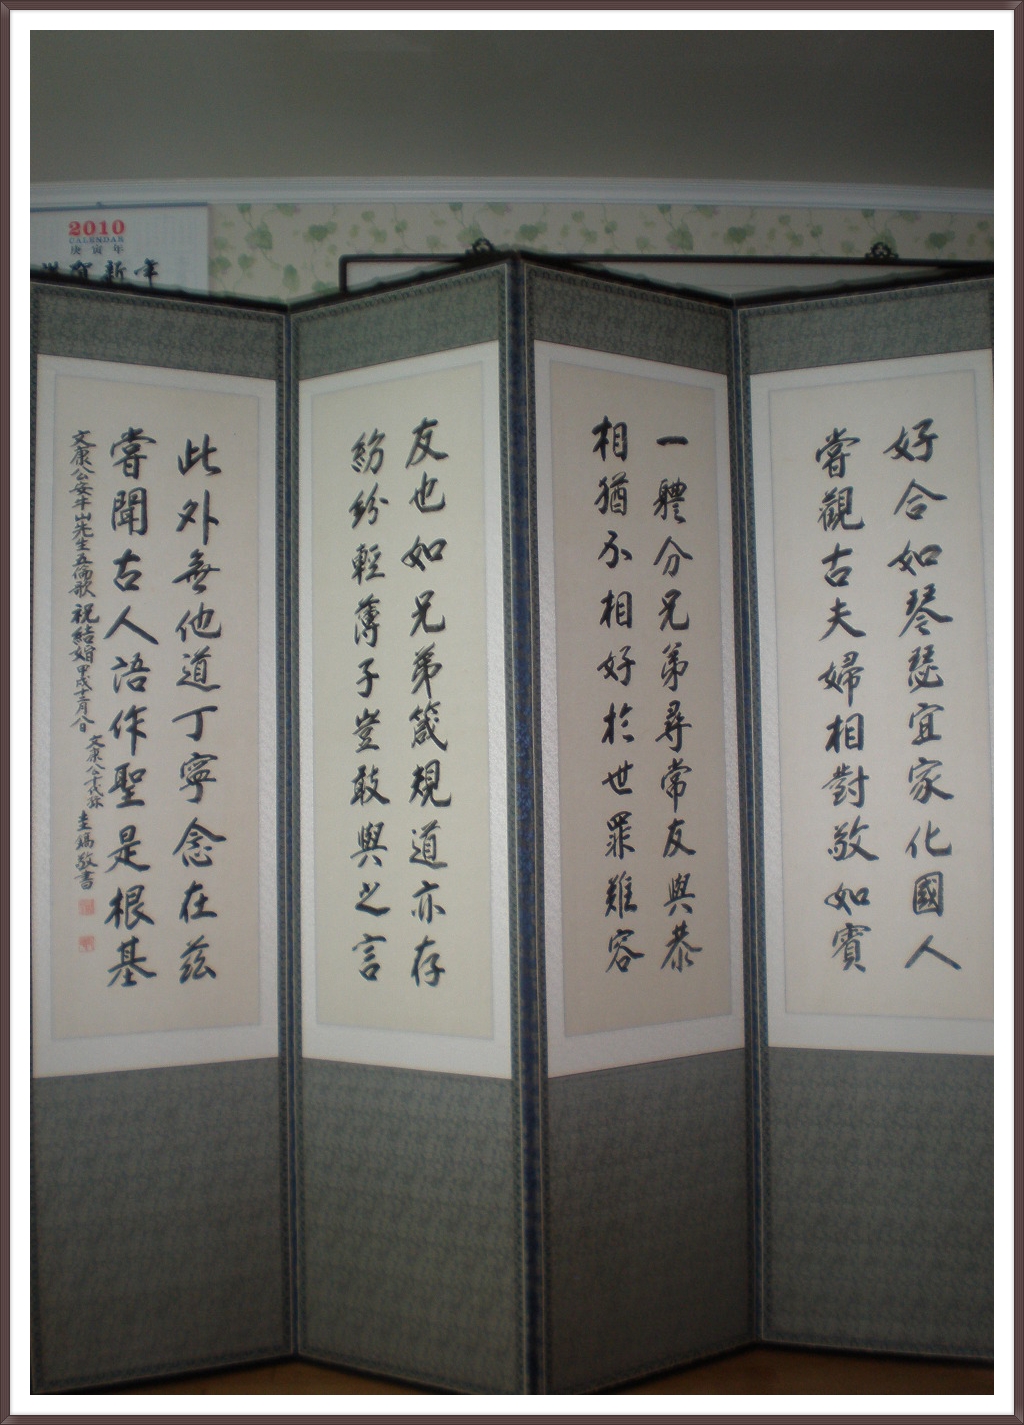 2010
CALENDAR
庚寅年
賀新年
好合如琴瑟宜家化國人
嘗觀古夫婦相對敬如賓
一體分兄弟尋常友與恭
相猶不相好於世罪難容
友也如兄弟箴規道亦存
紛紛輕薄子豈敢與之言
此外無他道丁寧念在茲
嘗聞古人語作聖是根基
文康公安牛山先生五倫歌 祝結婚 甲戌十二月八日
文康公十代孫 圭鎬敬書